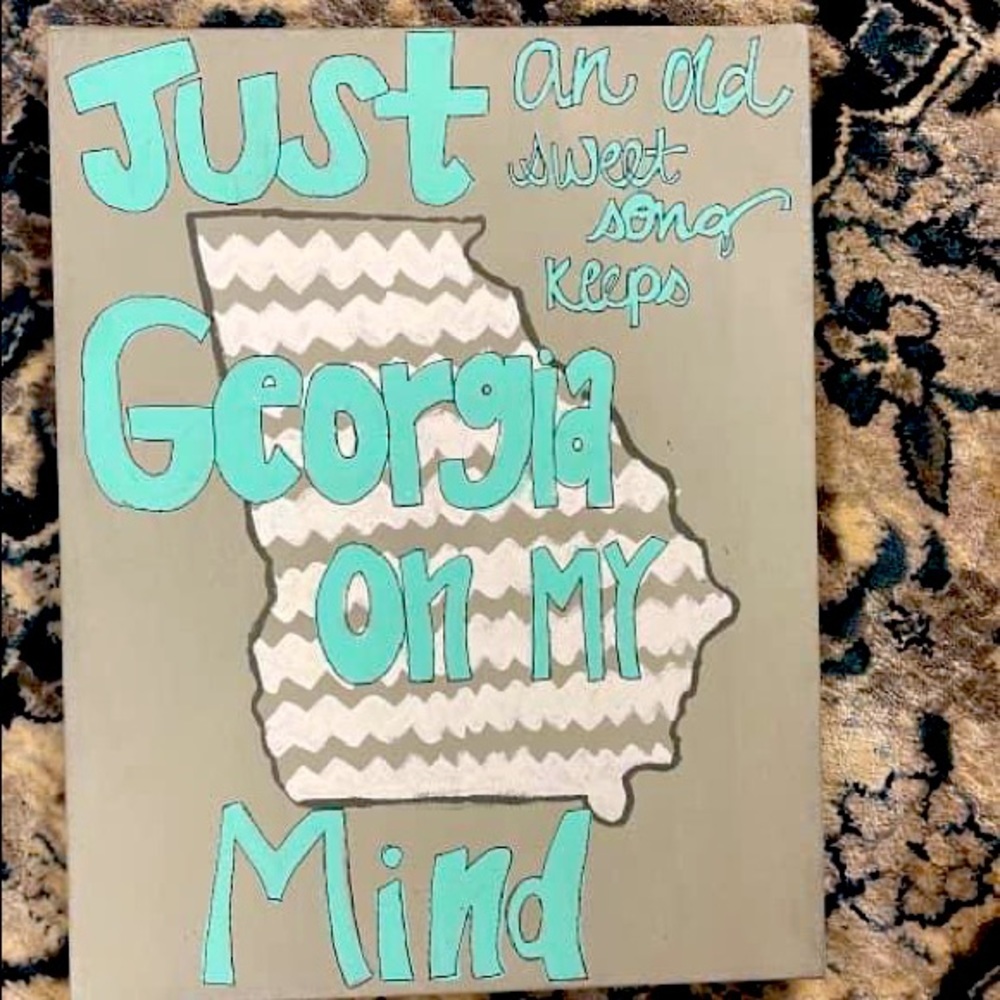 Just an old
sweet
song
keeps
Georgia
on MY
Mind